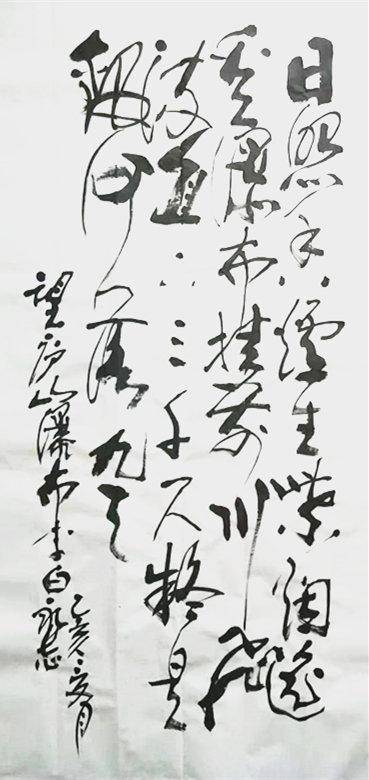 日照香爐生紫烟遥
看瀑布挂前川飛
流直下三千尺疑是
銀河落九天
望庐山瀑布李白永志
己亥夏月